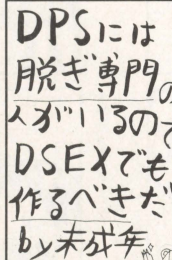 DPSには
脱ぎ専門の
人がいるので
DSEXでも
作るべきだ
by未成年